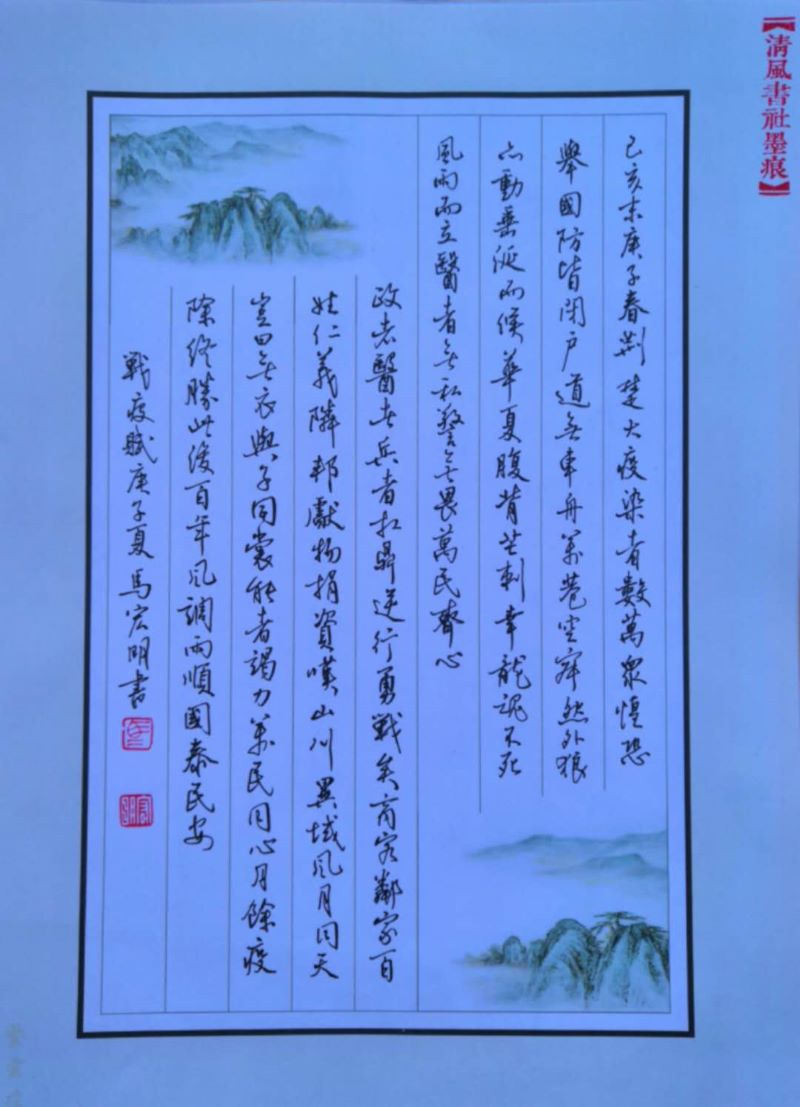 【清風書社墨痕】
己亥末庚子春荆楚大疫染者數萬眾惶恐
舉國防皆閉户道無車舟萬巷空寂然外狼
亦動垂涎而候華夏腹背芒刺幸龍魂不死
風雨而立醫者無私警無畏萬民齊心
政者醫者兵者扛鼎逆行勇戰矣商客鄰家百
姓仁義隣邦獻物捐資嘆山川異域風月同天
豈曰無衣與子同裳能者竭力萬民同心月餘疫
除終勝此後百年風調雨順國泰民安
戰疫賦庚子夏馬宏明書